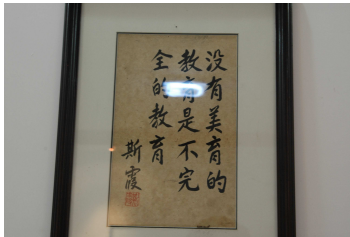 没有美育的
教育是不完
全的教育
斯霞